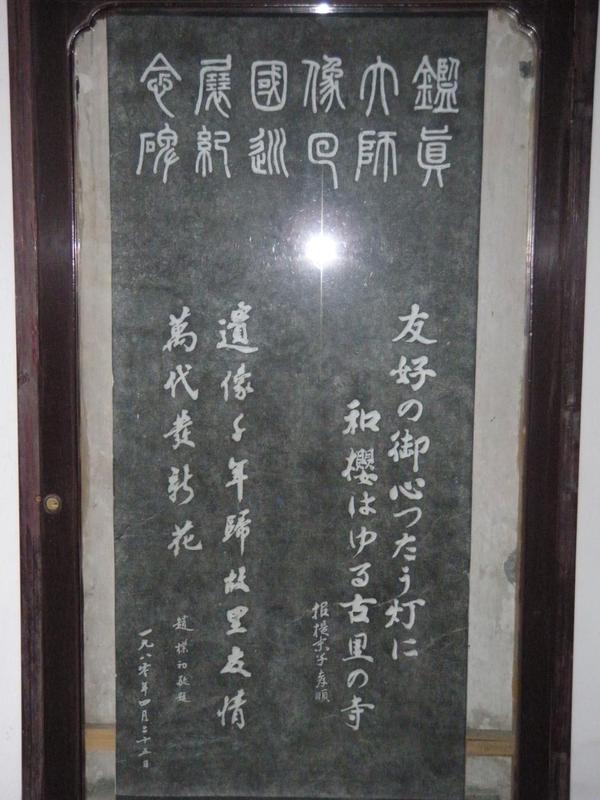 鑑眞大師像回國巡展紀念碑
友好の御心つたう灯に
和櫻はゆる古里の寺
招提末子孝順
遺像千年歸故里友情
萬代發新花
趙樸初敬題
一九八零年四月二十日